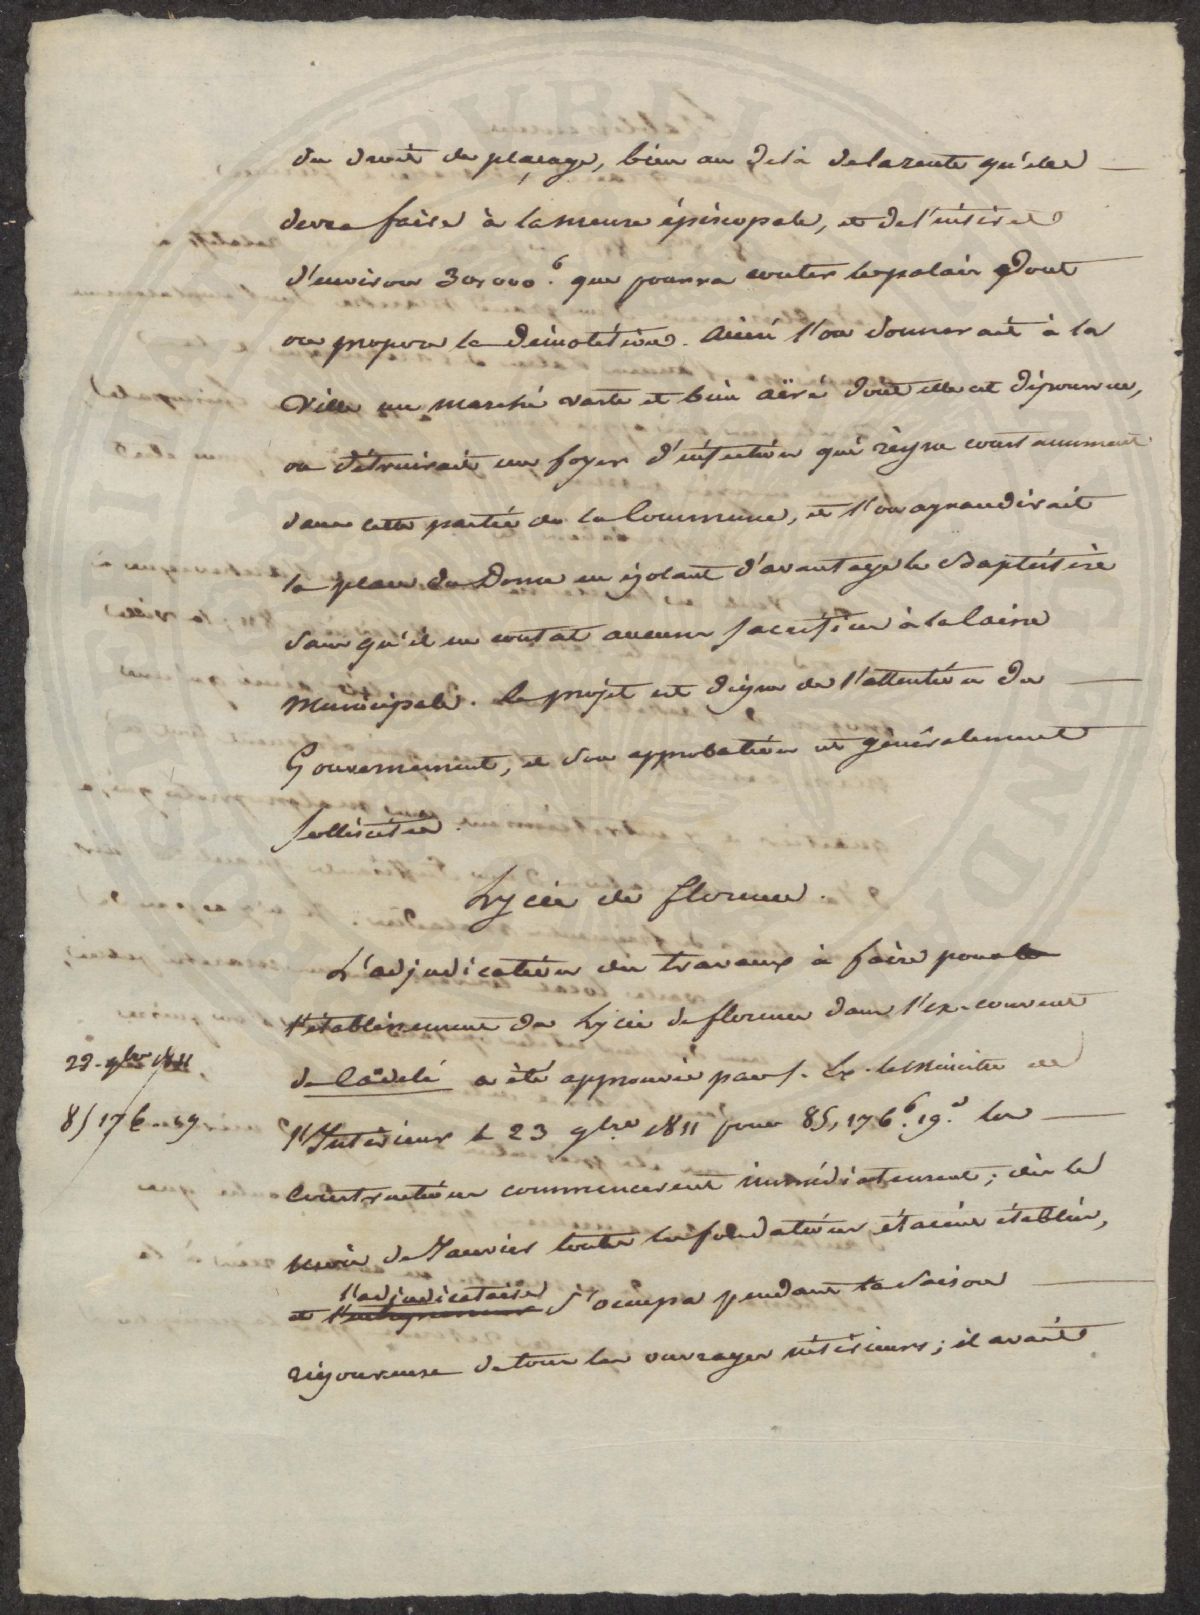 du droit de plaçage, bien au delà de la rente qu'elle
devra faire à la mense épiscopale, et de l'intéret
d'environ 30,000 f. que pourra couter le palais dont
on propose la démolition. Ainsi l'on donnerait à la
Ville un marché vaste et bien aëré dont elle est dépourvue,
on détruirait un foyer d'infection qui règne constamment
dans cette partie de la Commune, et l'on agrandirait
la place du Dome en isolant d'avantage le Baptistère
sans qu'il en coutat aucuns sacrifices à la Caisse
Municipale. Ce projet est digne de l'attention du
Gouvernement, et son approbation est généralement
sollicitée.
Lycée de florence.
L'adjudication des travaux à faire pour
l'établissement du Lycée de florence dans l'ex-couvent
de Candeli a été approuvée par S. Ex. le Ministre de
23 9bre 1811
l'Intérieur le 23 9bre 1811 pour 85,176 f. 19 c. les
85176 19
constructions commencerent immédiatement; dès le
mois de Janvier toutes les fondations étaient établies,
l'adjudicataire
et l'entrepreneur s'occupa pendant la saison
rigoureuse de tous les ouvrages intérieurs; il avait